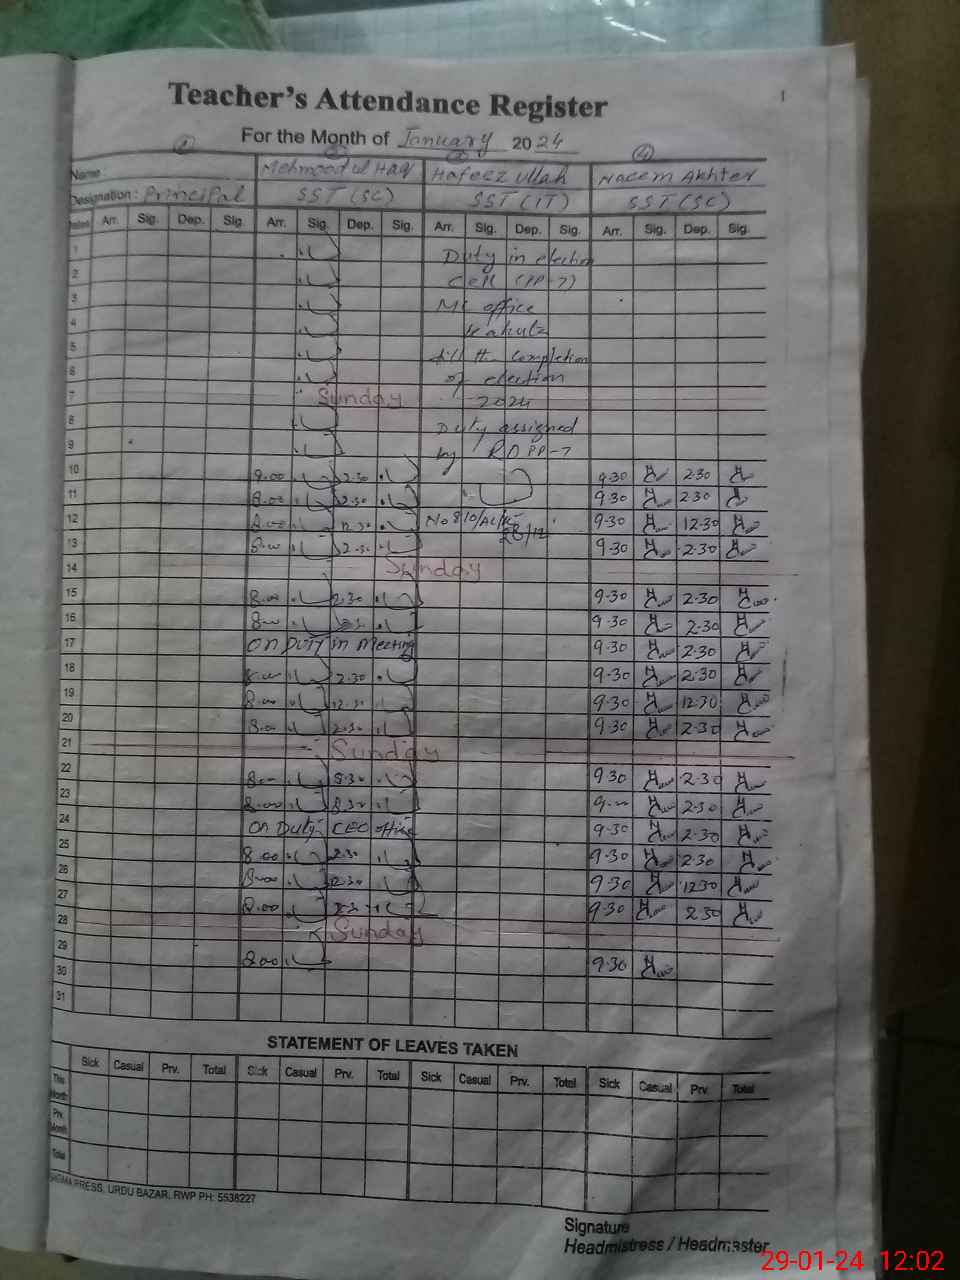 1
Teacher's Attendance Register
For the Month of January 2024
1 2 3 4
Name : Mehmood ul Haq Hafeez ullah Naeem Akhter
Designation : Principal SST (SC) SST (IT) SST (SC)
Dates Arr. Sig. Dep. Sig. Arr. Sig. Dep. Sig. Arr. Sig. Dep. Sig. Arr. Sig. Dep. Sig.
1 Duty in election
2 Cell (PP-7)
3 office
4 Kahuta
5 till the completion
6 of election
7 Sunday 2024
8 Duty assigned
9 by RO PP-7
10 8.00 2.30 9.30 2.30
11 8.00 2.30 9.30 2.30
12 8.00 12.30 9.30 12.30
13 8.00 2.30 9.30 2.30
14 Sunday
15 8.00 2.30 9.30 2.30
16 8.00 2.30 9.30 2.30
17 ON Duty in Meeting 9.30 2.30
18 8.00 2.30 9.30 2.30
19 8.00 12.30 9.30 12.30
20 8.00 2.30 9.30 2.30
21 Sunday
22 8.00 9.30 2.30
23 8.00 2.30
24 on Duty CEO office 9.30 2.30
25 8.00 2.30 9.30 2.30
26 8.00 12.30 9.30 12.30
27 8.00 9.30 2.30
28 Sunday
29 8.00 9.30
30
31
STATEMENT OF LEAVES TAKEN
Sick Casual Prv. Total Sick Casual Prv. Total Sick Casual Prv. Total Sick Casual Prv. Total
This Month
Prv. Month
Total
PRESS, URDU BAZAR, RWP PH: 5536227
Signature
Headmistress / Headmaster
29-01-24 12:02